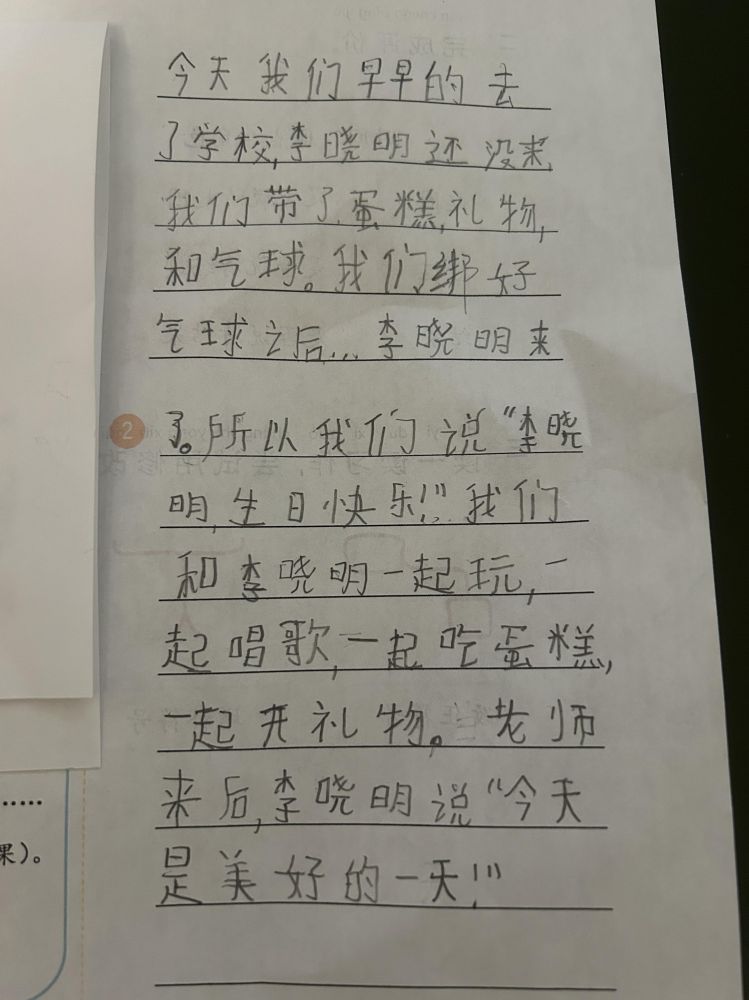 今天我们早早的去
了学校,李晓明还没来,
我们带了蛋糕,礼物,
和气球。我们绑好
气球之后...李晓明来
2 了。所以我们说“李晓
明,生日快乐!”我们
和李晓明一起玩,一
起唱歌,一起吃蛋糕,
一起开礼物。老师
来后,李晓明说“今天
是美好的一天!”
......
果)。